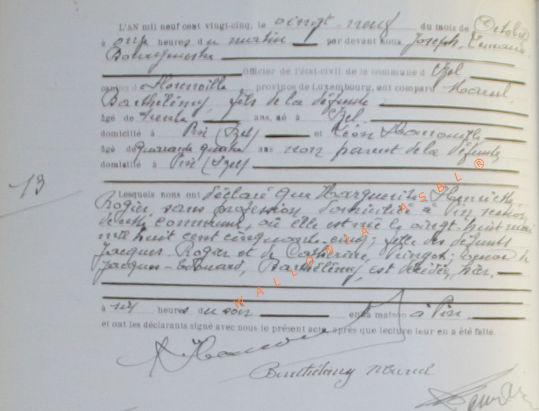 L'AN mil neuf cent vingt-cinq, le vingt-neuf du mois de Octobre
à onze heures du matin par devant Nous Joseph
Bourgmestre
Officier de l'état-civil de la commune d'Izel
canton de Florenville province de Luxembourg, ont comparu Marcel
Barthélémy, fils de la défunte
âgé de trente ans, né à Izel
domicilié à Pin (Izel) et Léon Hanouille
âgé de quarante quatre ans non parent de la défunte
domicilié à Pin (Izel)
13
Lesquels nous ont déclaré que Marguerite Henriette
Rogier sans profession, domiciliée à Pin, section
de cette commune, où elle est née le vingt-huit mai
mil huit cent cinquante cinq; fille des défunts
Jacques Rogier et de Catherine ; veuve de
Jacques-Edouard, Barthélémy, est décédée hier
à six heures du soir en sa maison à Pin
et ont les déclarants signé avec nous le présent acte, après que lecture leur en a été faite.
Barthélémy Marcel
WALLONIA ASBL ®